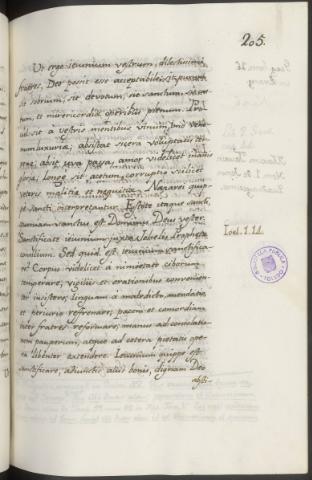 205.
Ut ergo ieiunium vestrum, dilectissimi
fratres, Deo possit esse acceptabile, sit purum,
sit sobrium, sit devotum, sit sanctum,
et misericordiæ operibus plenum.
sit a vestris mentibus vinum, unde
luxuria; absistat sicera voluptatis
abiit uva passa, amor videlicet
longe sit acetum, corruptio scilicet
veteris malitiæ et nequitiæ. Nazarei quip-
pe sancti interpretantur. Estote itaque sancti,
quoniam sanctus est Dominus Deus vester.
Sanctificate ieiunium juxta Johelis Prophetæ
consilium. Sed quid est ieiunium sanctifica-
re? Corpus videlicet a nimietate ciborum
temperare, vigiliis et orationibus convenien-
ter insistere, linguam a maledicto, mendatio
et periurio refrenare; pacem et concordiam
inter fratres reformare; manus ad consolatio-
nem pauperum, atque ad cetera pietatis ope-
ra libenter extendere. Ieiunium quippe est
sanctificare, adiunctis aliis bonis, dignam Deo
absti-
Ioel. 1. 14.
BIBLIOTECA PUBLICA
TOLEDO